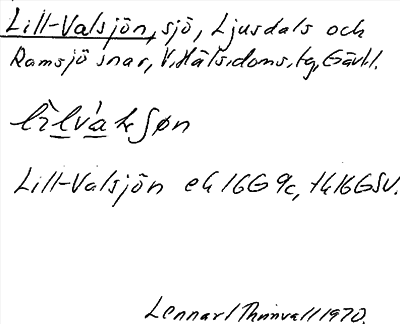 Lill-Valsjön, sjö, Ljusdals och
Ramsjö snar, V. Häls. doms. tg, Gävl. l.
Lill-Valsjön ek 16G 9c, tk 16G SV.
Lennart Thinvall 1970.